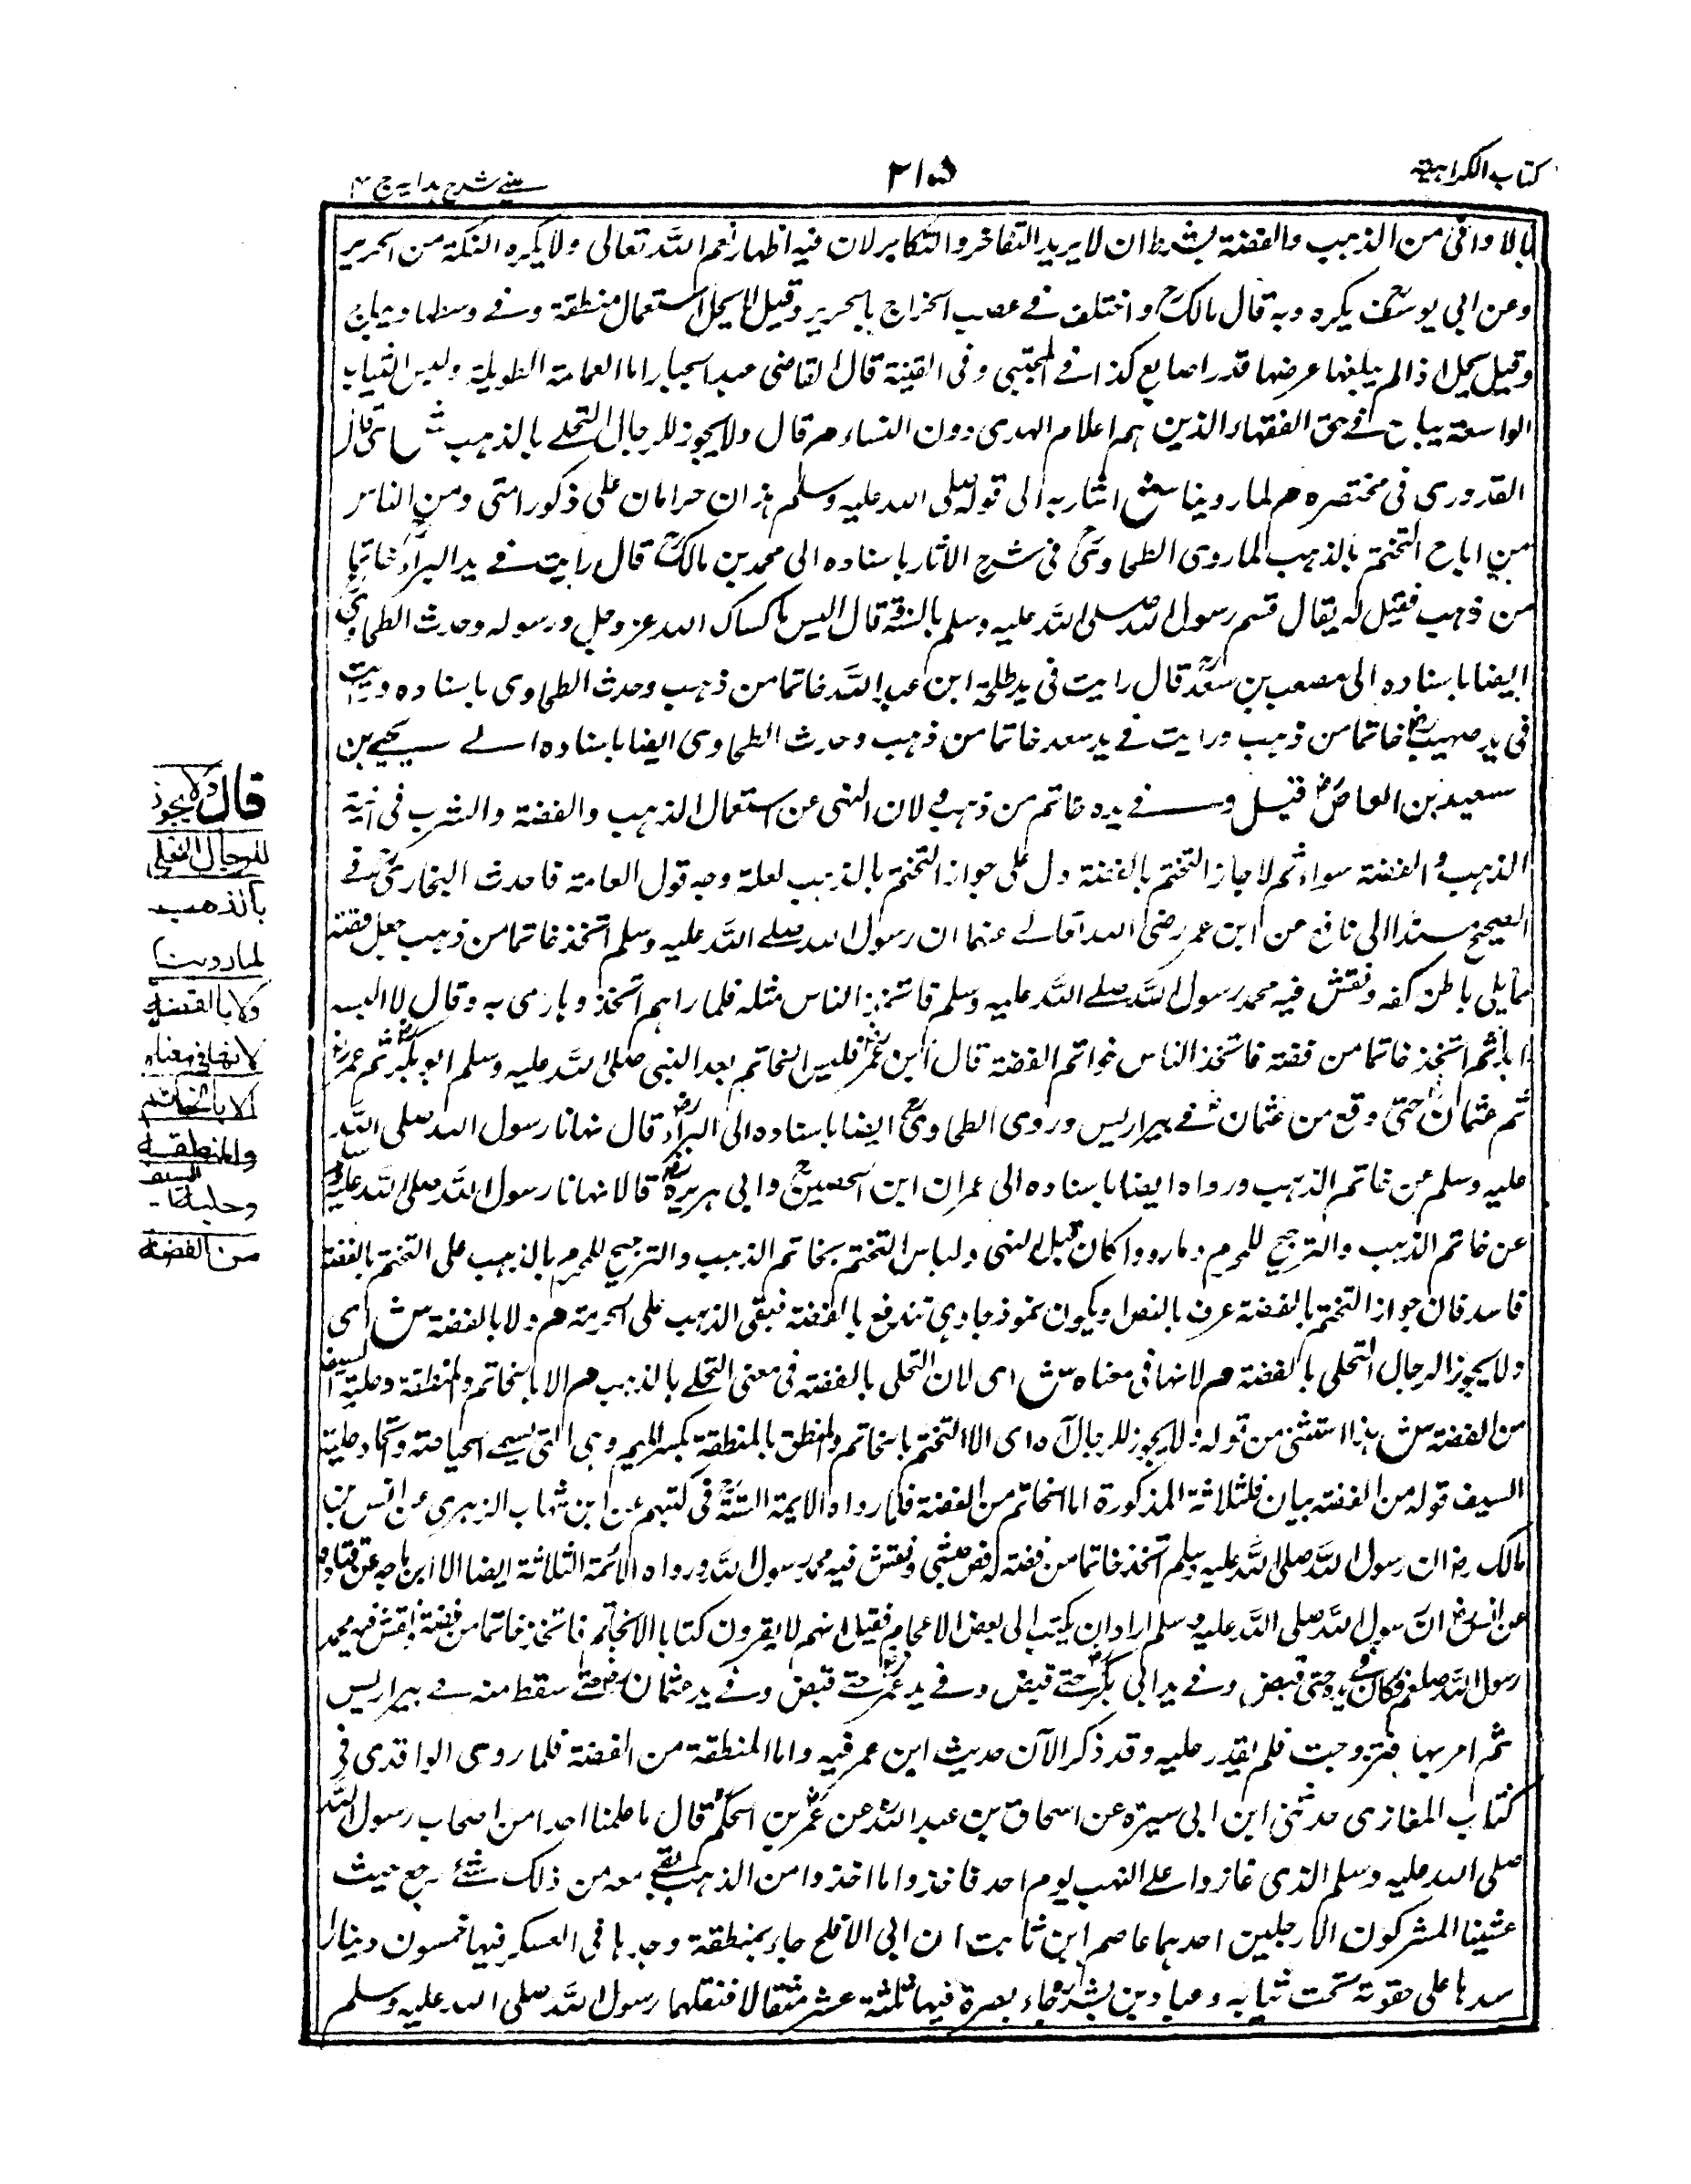 كتاب الكراهية
٢١٥
عيني شرح هدايه ج ٤
بالاواني من الذهب والفضة بشرط ان لا يريد التفاخر والتكاثر لان فيه اظهار نعم الله تعالى ولا يكره التكة من الحرير
وعن ابي يوسفؒ يكره وبه قال مالكؒ واختلف في عصب الخراج بالحرير وقيل لا يحل استعمال منطقة وفي وسطها ديباج
وقيل يحل اذا لم يبلغها عرضها قدر اصابع كذا في المجتبى وفي القنية قال القاضي عبد الجبار اما العمامة الطويلة ولبس الثياب
الواسعة يباح في حق الفقهاء الذين هم اعلام الهدى دون النساء م قال ولا يجوز للرجال التحلي بالذهب ش اي قال
القدوري في مختصره م لما روينا ش اشار به الى قوله صلى الله عليه وسلم هذان حرامان على ذكور امتي ومن الناس
من اباح التختم بالذهب لما روى الطحاويؒ في شرح الاثار باسناده الى محمد بن مالكؒ قال رايت في يد البراءؓ خاتما
من ذهب فقيل له يقال قسم رسول الله صلى الله عليه وسلم بالسنة قال البس ما كساك الله عز وجل ورسوله وحدث الطحاويؒ
ايضا باسناده الى مصعب بن سعدؒ قال رايت في يد طلحة ابن عبد الله خاتما من ذهب وحدث الطحاوي باسناده ورايت
في يد صهيبؓ خاتما من ذهب ورايت في يد سعد خاتما من ذهب وحدث الطحاوي ايضا باسناده الى يحيى بن
سعيد بن العاصؓ قتيل وفي يده خاتم من ذهب لان النهي عن استعمال الذهب والفضة والشرب في آنية
الذهب والفضة سواء ثم لا جاز التختم بالفضة دل على جواز التختم بالذهب لعلة وجه قول العامة فاحدث البخاريؒ في
الصحيح مسندا الى نافع عن ابن عمر رضي الله تعالى عنهما ان رسول الله صلى الله عليه وسلم اتخذ خاتما من ذهب جعل فصه
مما يلي باطن كفه ونقش فيه محمد رسول الله صلى الله عليه وسلم فاتخذ الناس مثله فلما راهم اتخذوها رمى به وقال لا البسه
ابدا ثم اتخذ خاتما من فضة فاتخذ الناس خواتم الفضة قال ابن عمرؓ فلبس الخاتم بعد النبي صلى الله عليه وسلم ابو بكرؓ ثم عمرؓ
ثم عثمانؓ حتى وقع من عثمانؓ في بير اريس وروى الطحاويؒ ايضا باسناده الى البراءؓ قال نهانا رسول الله صلى الله
عليه وسلم عن خاتم الذهب ورواه ايضا باسناده الى عمران ابن الحصينؓ وابي هريرةؓ قالا نهانا رسول الله صلى الله عليه وسلم
عن خاتم الذهب والترجيح للمحرم وما رووا كان قبل النهي ولباس التختم بخاتم الذهب والترجيح للمحرم بالذهب على التختم بالفضة
فاسد فان جواز التختم بالفضة عرف بالنص ويكون نموذجا وهي تندفع بالفضة فبقي الذهب على الحرمة م ولا بالفضة ش اى
ولا يجوز للرجال التحلي بالفضة م لانها في معناه ش اى لان التحلي بالفضة في معنى التحلي بالذهب م الا بالخاتم والمنطقة وحلية السيف
من الفضة ش هذا استثنى من قوله ولا يجوز للرجال آه اى الا التختم بالخاتم والمنطق بالمنطقة بكسر الميم وهي التي يسمى الحياصة وتحاد حلية
السيف قوله من الفضة بيان للثلاثة المذكورة اما الخاتم من الفضة فلما رواه الايمة الستةؒ في كتبهم عن ابن شهاب الزهري عن انس بن
مالك رض ان رسول الله صلى الله عليه وسلم اتخذ خاتما من فضة له فص حبشي ونقش فيه محمد رسول الله ورواه الائمة الثلاثة ايضا الا ابن ماجه عن قتادة
عن انسؓ ان رسول الله صلى الله عليه وسلم اراد ان يكتب الى بعض الاعجام فقيل انهم لا يقرون كتابا الا بخاتم فاتخذ خاتما من فضة ونقش فيه محمد
رسول الله صلعم فكان في يده حتى قبض وفي يد ابي بكرؓ حتى قبض وفي يد عمرؓ حتى قبض وفي يد عثمانؓ حتى سقط منه في بير اريس
ثم امر بها فنزحت فلم يقدر عليه وقد ذكر الآن حديث ابن عمر فيه واما المنطقة من الفضة فلما روى الواقدي في
كتاب المغازى حدثني ابن ابي سبرة عن اسحاق بن عبد الله عن عمر بن الحكم قال ما علمنا احدا من اصحاب رسول الله
صلى الله عليه وسلم الذي غازوا على النهب يوم احد فاخذوا ما اخذوا من الذهب بقي معه من ذلك شئ رجع حيث
غشينا المشركون الا رجلين احدهما عاصم ابن ثابت ان ابي الافلح جاء بمنطقة وجدها في العسكر فيها خمسون دينارا
سدها على حقوته تحت ثيابه وعباد بن بشرؓ جاء بصرة فيها ثلثة عشر مثقالا فنفلهما رسول الله صلى الله عليه وسلم
قال ولا يجوز
للرجال التحلي
بالذهب
لما روينا
ولا بالفضة
لانها في معناه
الا بالخاتم
والمنطقة
وحلية السيف
من الفضة